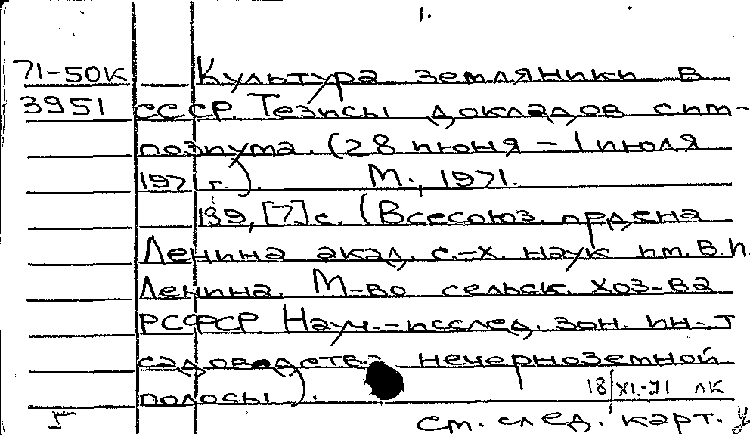 1.
71-50К Культура земляники в
3951 СССР. Тезисы докладов сим-
позиума. (28 июня - 1 июля
1971 г.). М., 1971.
139, [7] с. (Всесоюз. ордена
Ленина акад. с.-х. наук им. В.И.
Ленина. М-во сельск. хоз-ва
РСФСР Науч.-исслед. зон. ин-т
садоводства нечерноземной
полосы).
18/XI-71 ЛК
см. след. карт.